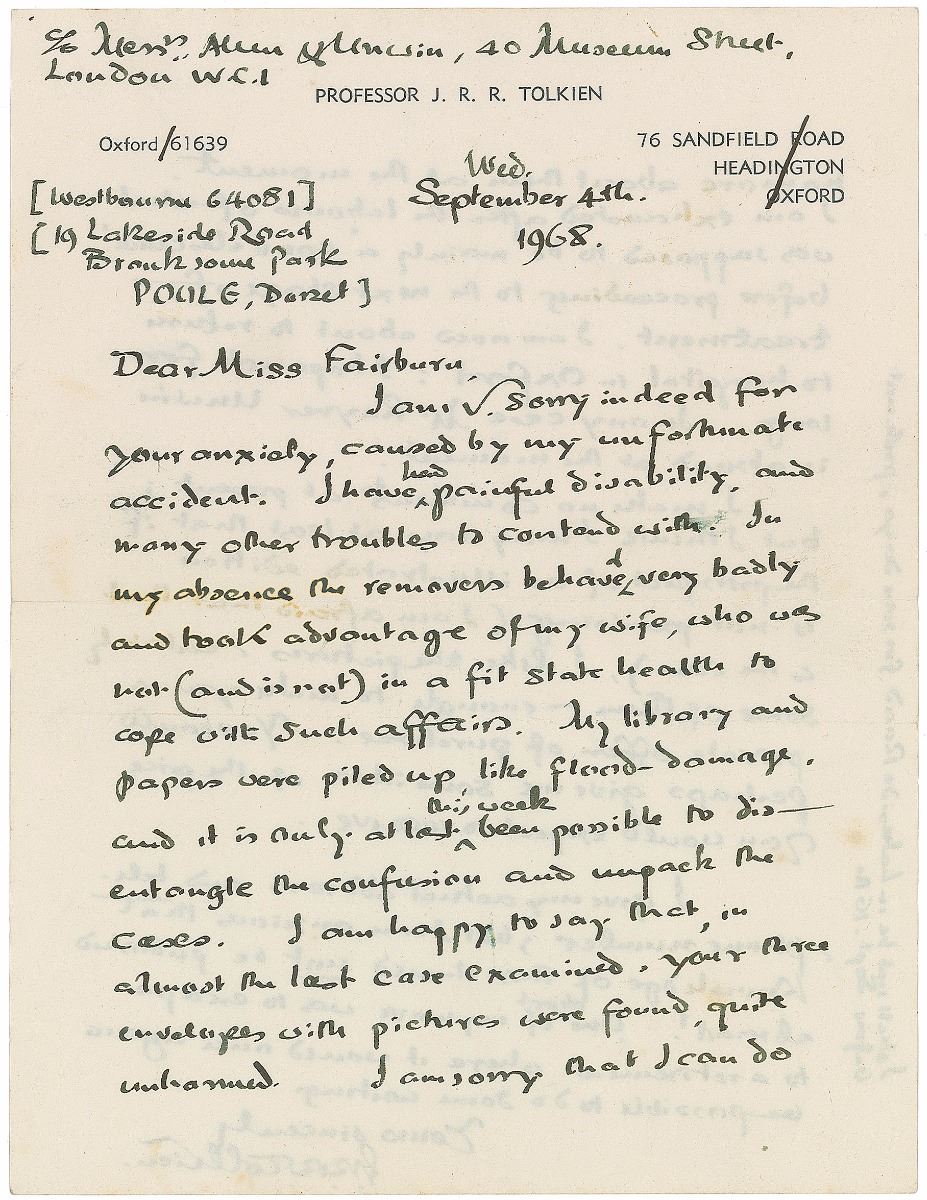 c/o Messrs. Allen & Unwin, 40 Museum Street,
London W.C.1
PROFESSOR J. R. R. TOLKIEN
Oxford/61639
76 SANDFIELD ROAD
HEADINGTON
OXFORD
Wed.
September 4th.
1968.
[Westbourne 64081]
[19 Lakeside Road
Branksome Park
POOLE, Dorset]
Dear Miss Fairburn,
I am v. sorry indeed for
your anxiety, caused by my unfortunate
accident. I have had painful disability, and
many other troubles to contend with. In
my absence the removers behaved very badly
and took advantage of my wife, who was
not (and is not) in a fit state health to
cope with such affairs. My library and
papers were piled up, like flood-damage,
and it is only at last this week been possible to dis-
entangle the confusion and unpack the
cases. I am happy to say that, in
almost the last case examined, your three
envelopes with pictures were found, quite
unharmed. I am sorry that I can do